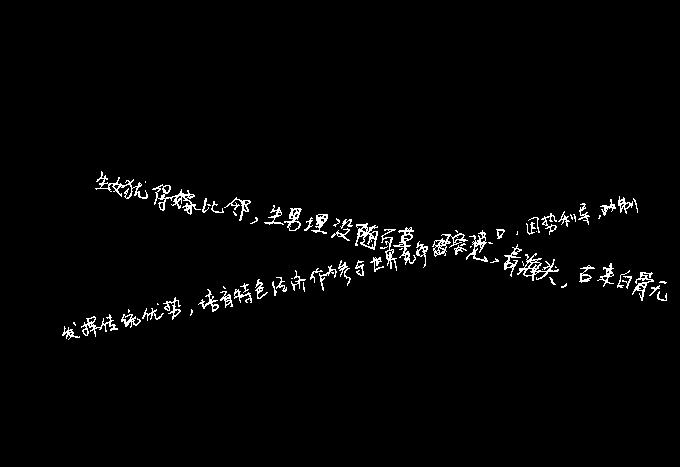 生女犹得嫁比邻，生男埋没随百草。君不见，青海头，古来白骨无
发挥传统优势，培育特色经济作为参与世界竞争的突破口，因势利导，